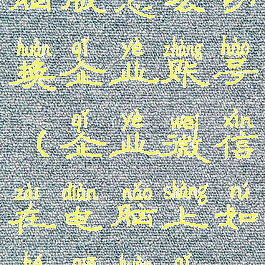 huàn qǐ yè zhàng hào
换企业账号
qǐ yè wēi xìn
(企业微信
zài diàn nǎo shàng rú
在电脑上如